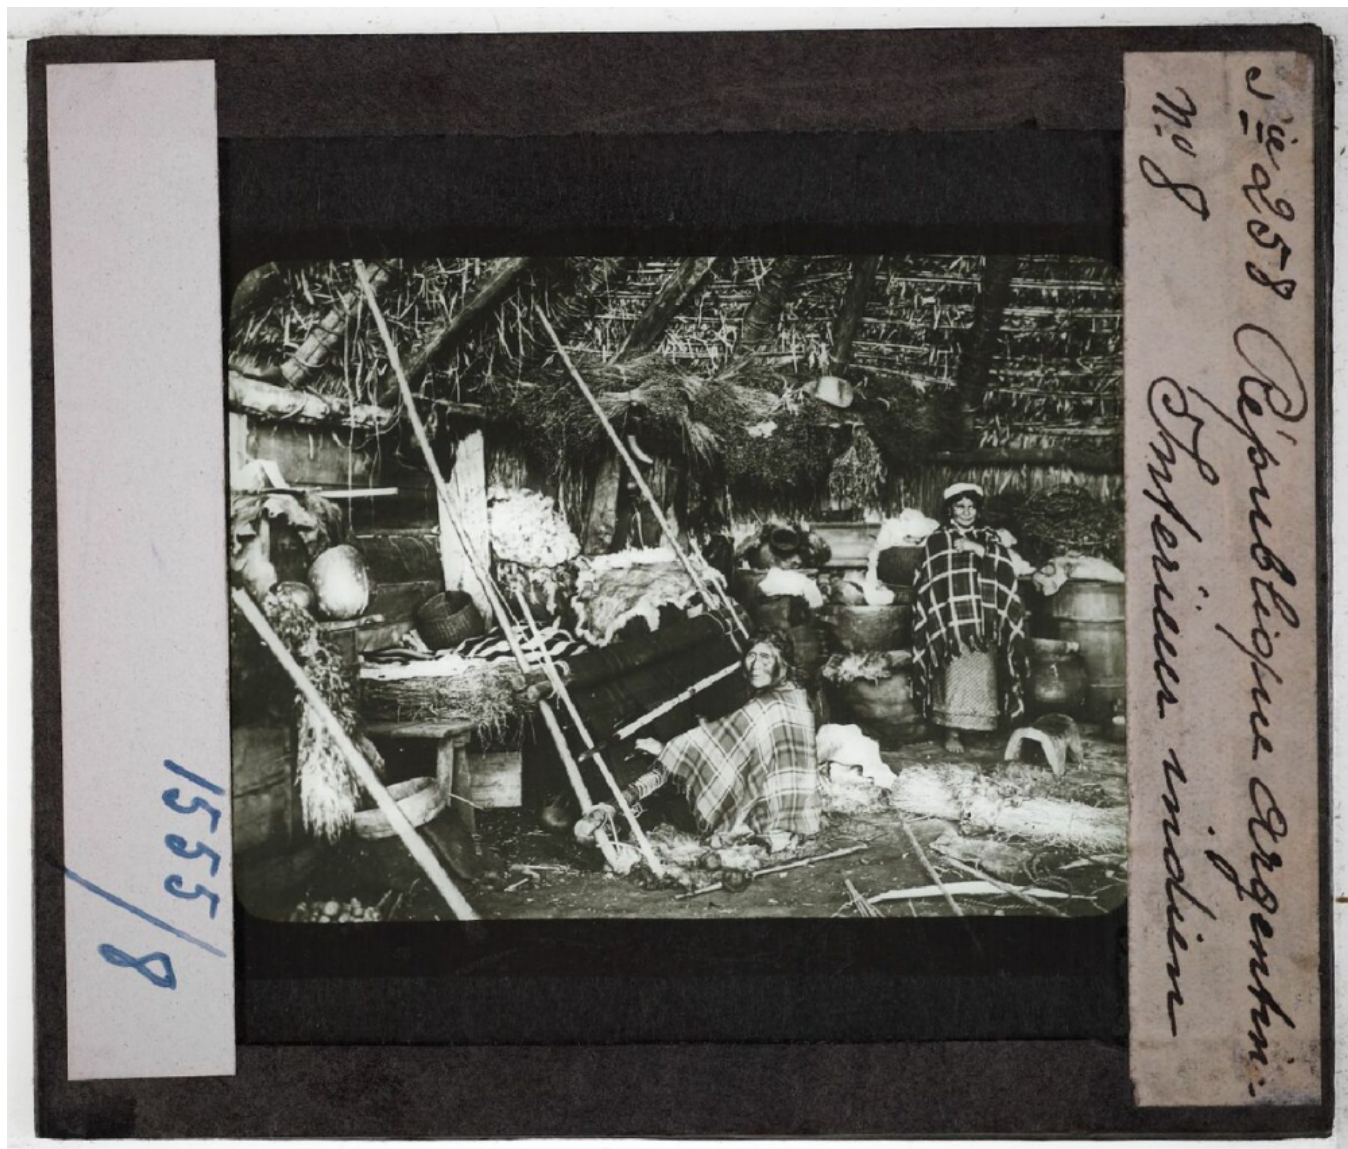 Sie 258 République Argentin.
No. 8 Intérieur indien
1555/8